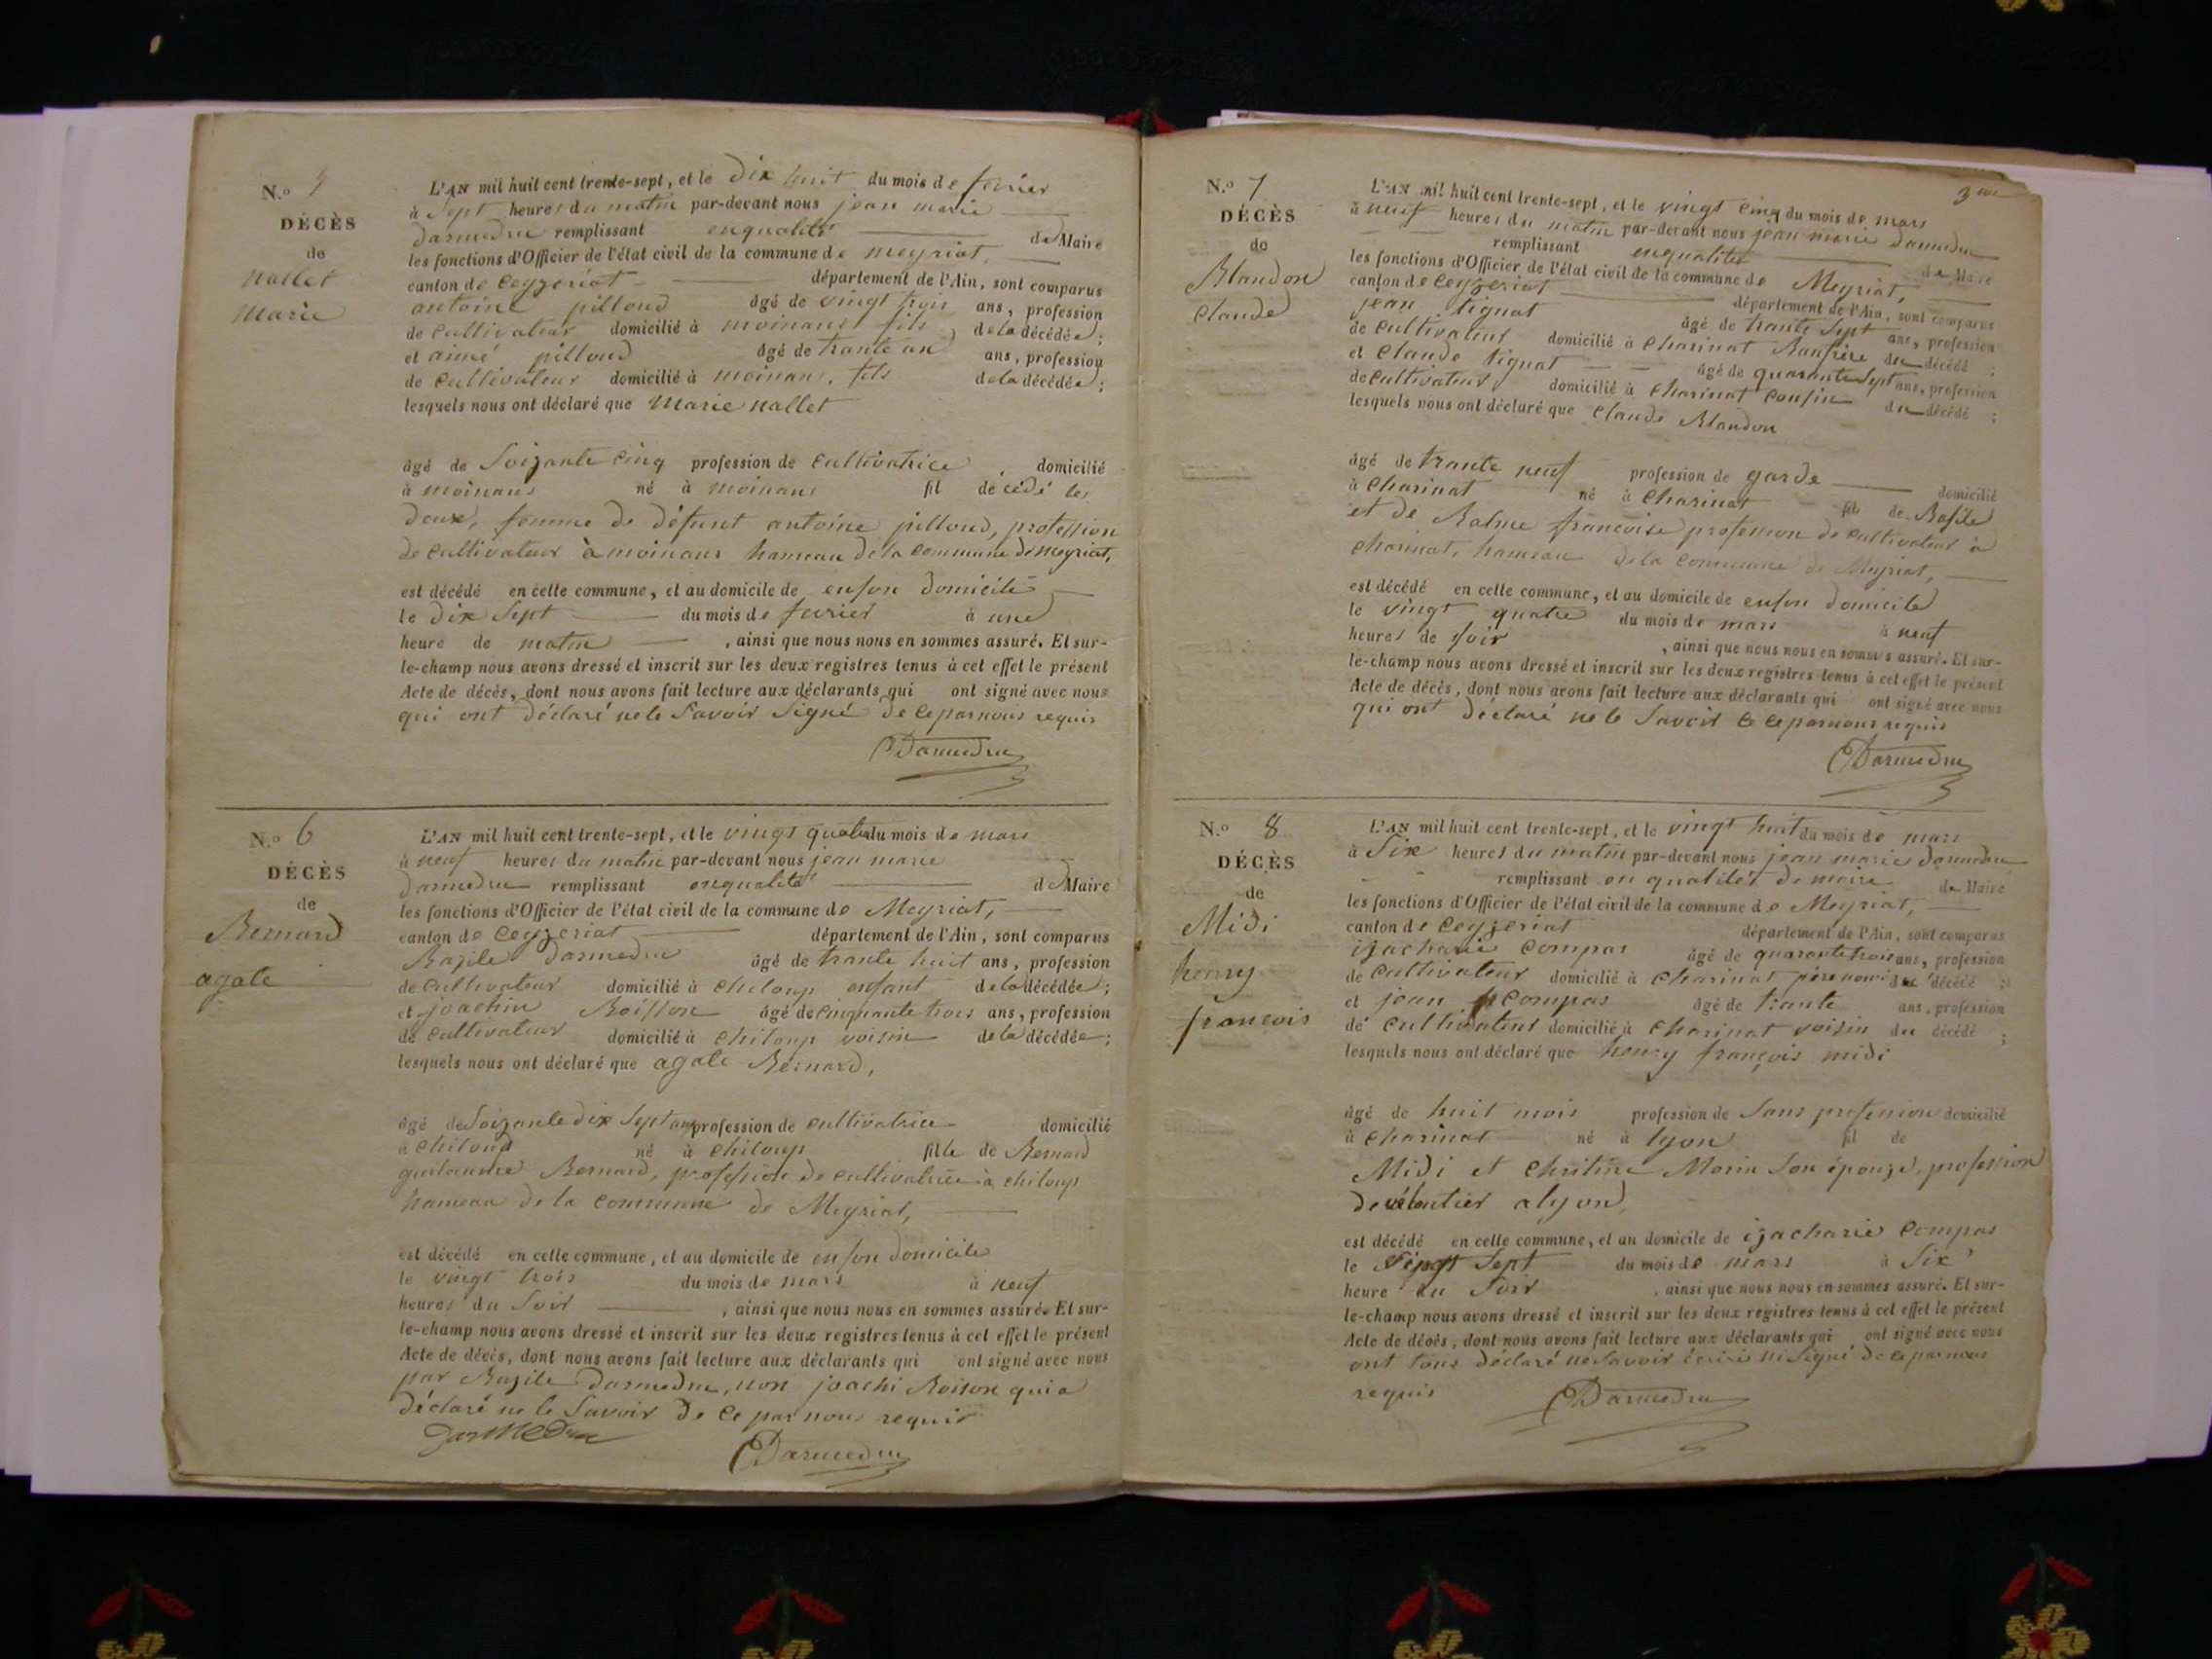 N.o 5
DÉCÈS
de
nallet
Marie
L'AN mil huit cent trente-sept, et le Dix huit du mois de fevrier
à Sept heures du matin par-devant nous jean marie
Darmedru remplissant enqualité de Maire
les fonctions d'Officier de l'état civil de la commune de meyriat,
canton de Ceyzeriat département de l'Ain, sont comparus
antoine pilloud âgé de vingt trois ans, profession
de Cultivateur domicilié à moinans fils de la décédée;
et aimé pilloud âgé de trante un ans, profession
de Cultivateur domicilié à moinans, fils de la décédée;
lesquels nous ont déclaré que Marie nallet
âgé de Soizante Cinq profession de Cultivatrice domicilié
à moinans né à moinans fil décédé les
Deux, femme de défunt antoine pilloud, profession
de Cultivateur à moinans hameau de la Commune de Meyriat,
est décédé en cette commune, et au domicile de enson domicile
le Dix Sept du mois de fevrier à une
heure de matin, ainsi que nous nous en sommes assuré. Et sur-
le-champ nous avons dressé et inscrit sur les deux registres tenus à cet effet le présent
Acte de décès, dont nous avons fait lecture aux déclarants qui ont signé avec nous
qui ont déclaré ne le Savoir Signé de ce par nous requis
Darmedru
N.o 6
DÉCÈS
de
Bernard
agate
L'AN mil huit cent trente-sept, et le vingt quatre du mois de mars
à neuf heures du matin par-devant nous jean marie
Darmedru remplissant enqualité de Maire
les fonctions d'Officier de l'état civil de la commune de Meyriat,
canton de Ceyzeriat département de l'Ain, sont comparus
Bazile Darmedru âgé de trante huit ans, profession
de Cultivateur domicilié à chiloup enfant de la décédée;
et joachin Boisson âgé de cinquante trois ans, profession
de Cultivateur domicilié à chiloup voisin de la décédée;
lesquels nous ont déclaré que agate Bernard,
âgé de Soizante dix Sept ans profession de cultivatrice domicilié
à chiloup né à chiloup fille de Bernard
guilaume Bernard, profession de cultivatrice à chiloup
hameau de la Commune de Meyriat,
est décédé en cette commune, et au domicile de en son domicile
le vingt trois du mois de mars à neuf
heures du Soir, ainsi que nous nous en sommes assuré. Et sur-
le-champ nous avons dressé et inscrit sur les deux registres tenus à cet effet le présent
Acte de décès, dont nous avons fait lecture aux déclarants qui ont signé avec nous
par Bazile Darmedru, non joachi Boison qui a
déclaré ne le Savoir De Ce par nous requis
Darmedru
Darmedru
3me
N.o 7
DÉCÈS
de
Blandon
Claude
L'AN mil huit cent trente-sept, et le vingt Cinq du mois de mars
à neuf heures du matin par-devant nous jean marie Darmedru
remplissant enqualité de Maire
les fonctions d'Officier de l'état civil de la commune de Meyriat,
canton de Ceyzeriat département de l'Ain, sont comparus
jean tignat âgé de trante Sept ans, profession
de Cultivateur domicilié à Charinat Baufrère du décédé;
et Claude tignat âgé de quarante Sept ans, profession
de Cultivateur domicilié à Charinat Cousin du décédé;
lesquels nous ont déclaré que Claude Blandon
âgé de trante neuf profession de garde domicilié
à Charinat né à Charinat fils de Basile
et de Balme francoise profession de cultivateur à
Charinat, hameau de la Commune de Meyriat,
est décédé en cette commune, et au domicile de enson domicile
le vingt quatre du mois de mars à neuf
heures de Soir, ainsi que nous nous en sommes assuré. Et sur-
le-champ nous avons dressé et inscrit sur les deux registres tenus à cet effet le présent
Acte de décès, dont nous avons fait lecture aux déclarants qui ont signé avec nous
qui ont déclaré ne le Savoir de ce par nous requis
Darmedru
N.o 8
DÉCÈS
de
Midi
henry
françois
L'AN mil huit cent trente-sept, et le vingt huit du mois de mars
à Six heures du matin par-devant nous jean marie Darmedru
remplissant en qualité de maire de Maire
les fonctions d'Officier de l'état civil de la commune de Meyriat,
canton de Ceyzeriat département de l'Ain, sont comparus
izacharie Compas âgé de quarante trois ans, profession
de Cultivateur domicilié à Charinat père du décédé;
et jean Compas âgé de trante ans, profession
de Cultivateur domicilié à Charinat voisin du décédé;
lesquels nous ont déclaré que henry françois midi
âgé de huit mois profession de Sans profession domicilié
à Charinat né à lyon fil de
Midi et Chritine Morin Son épouze, profession
de alyon,
est décédé en cette commune, et au domicile de izacharie Compas
le Vingt Sept du mois de mars à Six
heure du Soir, ainsi que nous nous en sommes assuré. Et sur-
le-champ nous avons dressé et inscrit sur les deux registres tenus à cet effet le présent
Acte de décès, dont nous avons fait lecture aux déclarants qui ont signé avec nous
ont tous déclaré ne Savoir écrire ni Signé de ce par nous
requis
Darmedru